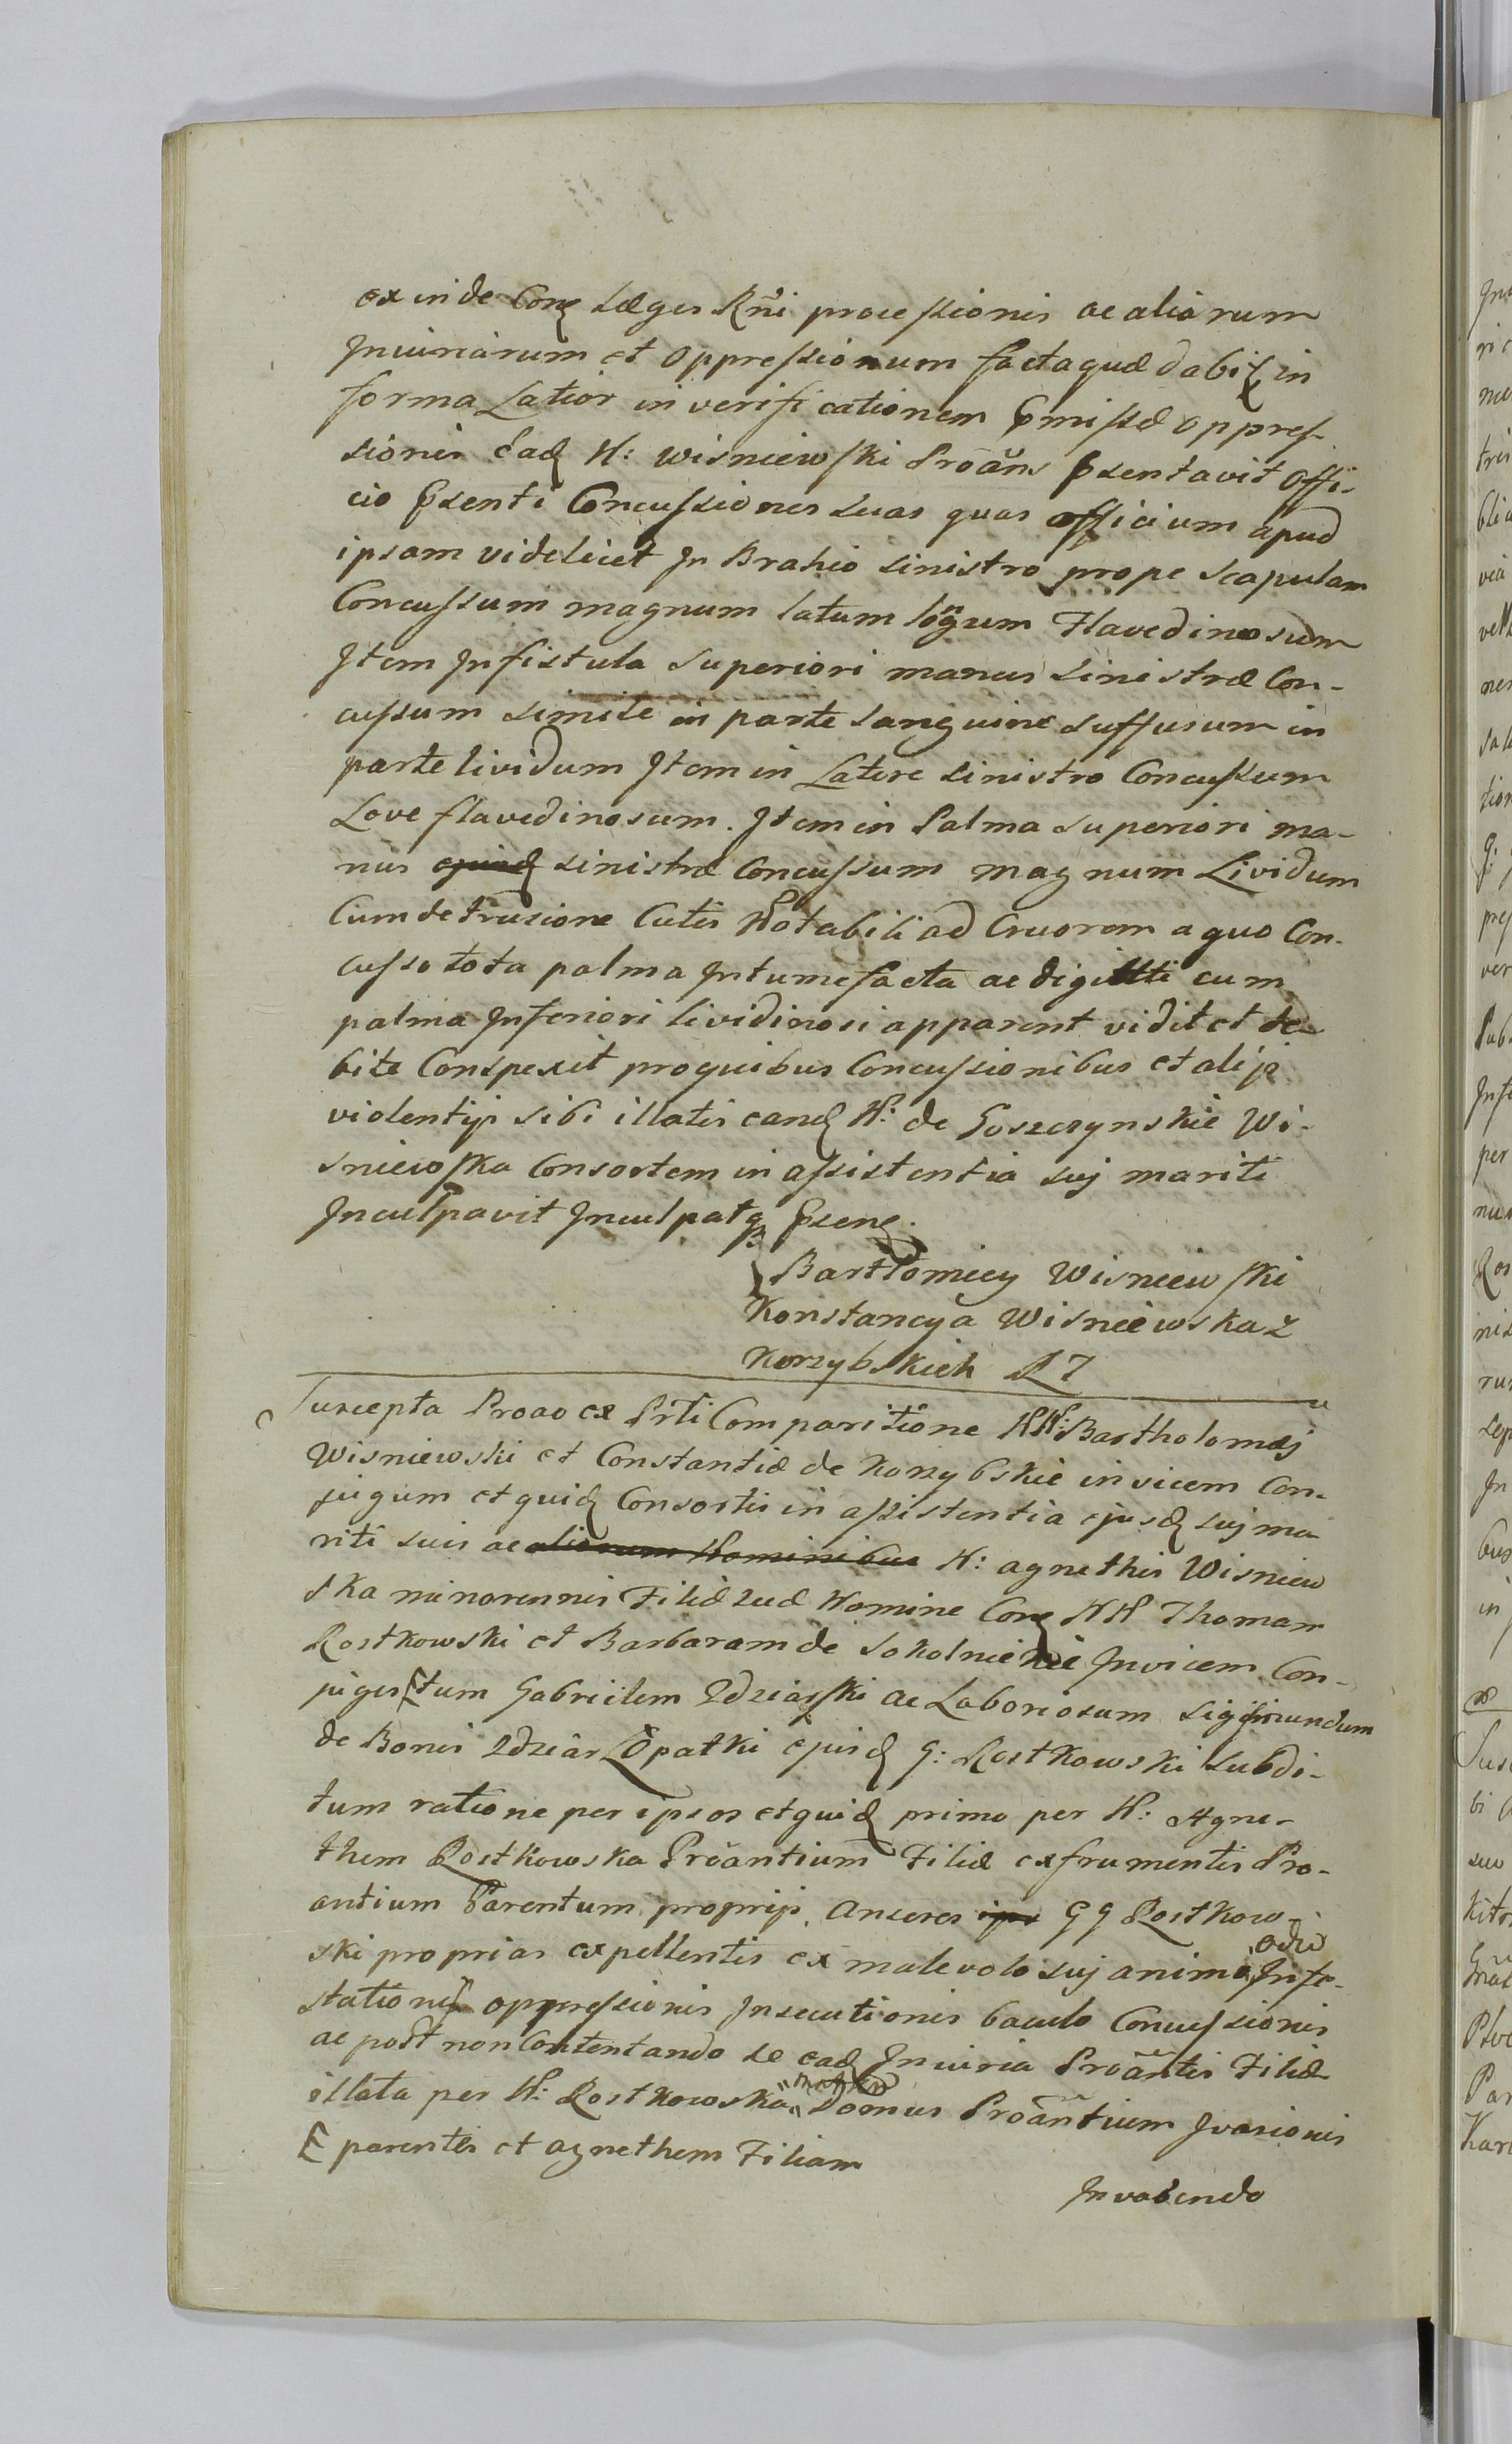 ex inde Conꝫ Læges Rñi processionis ac aliarum
Injuriarum et Oppressionum facta quæ dabiꝫ in
forma Latior in verificationem Pmissæ oppres-
sionis Eadꝫ N: Wisniewski Proãns Psentavit Offi-
cio Psenti Concussiones suas quas officium apud
ipsam videlicet In Brahio sinistro prope scapulam
Concussum magnum latum longum Flavedinosum
Item In fistula superiori manus sinistræ Con-
cussum simile in parte sanguine suffusum in
parte lividum Item in Latere sinistro Concussum
Love flavedinosum. Item in Palma superiori ma-
nus ejusdꝫ sinistræ Concussum magnum Lividum
Cum detrusione Cutis Notabili ad Cruorem a quo Con-
cusso tota palma Intumefacta ac digiti cum
palma Inferiori lividinosi apparent vidit et de-
bite Conspexit pro quibus Concussionibus et alijs
violentijs sibi illatis eandꝫ N: de Goszczynskie Wi-
sniewska Consortem in assistentia suj mariti
Inculpavit Inculpatqꝫ Psenꝫ.
Bartłomiey Wisniewski
Konstancya Wisniewska z
Korzybskich
Suscepta Proao ex Prti Comparitione NN: Bartholomæj
Wisniewski et Constantiæ de Korzybskie invicem Con-
jugum et quidꝫ Consortis in assistentia ejusdꝫ suj ma
riti suis ac aliorum Nominibus N: agnethis Wisniew
ska minorennis Filiæ suæ Nomine Conꝫ NN Thomam
Rostkowski et Barbaram de Sokolnickie Invicem Con-
juges tum Gabrielem Zdziarski ac Laboriosum Sigismundum
de Bonis Zdziar Łopatki ejusdꝫ G: Rostkowski subdi-
tum ratione per ipsos et quidꝫ primo per N: Agne-
them Rostkowska Proãntium Filiæ ex frumentis Pro-
antium Parentum proprijs Anseres ips GG Rostkow-
ski proprias expellentis ex malevolo suj animo odio Infe-
stationis oppressionis Insecutionis baculo Concussionis
ac post non Contentando se eadꝫ Iniuria Proãntis Filiæ
illata per N: Rostkowska Domus Proãntium Ivasionis
parentes et agnethem Filiam
Invadendo